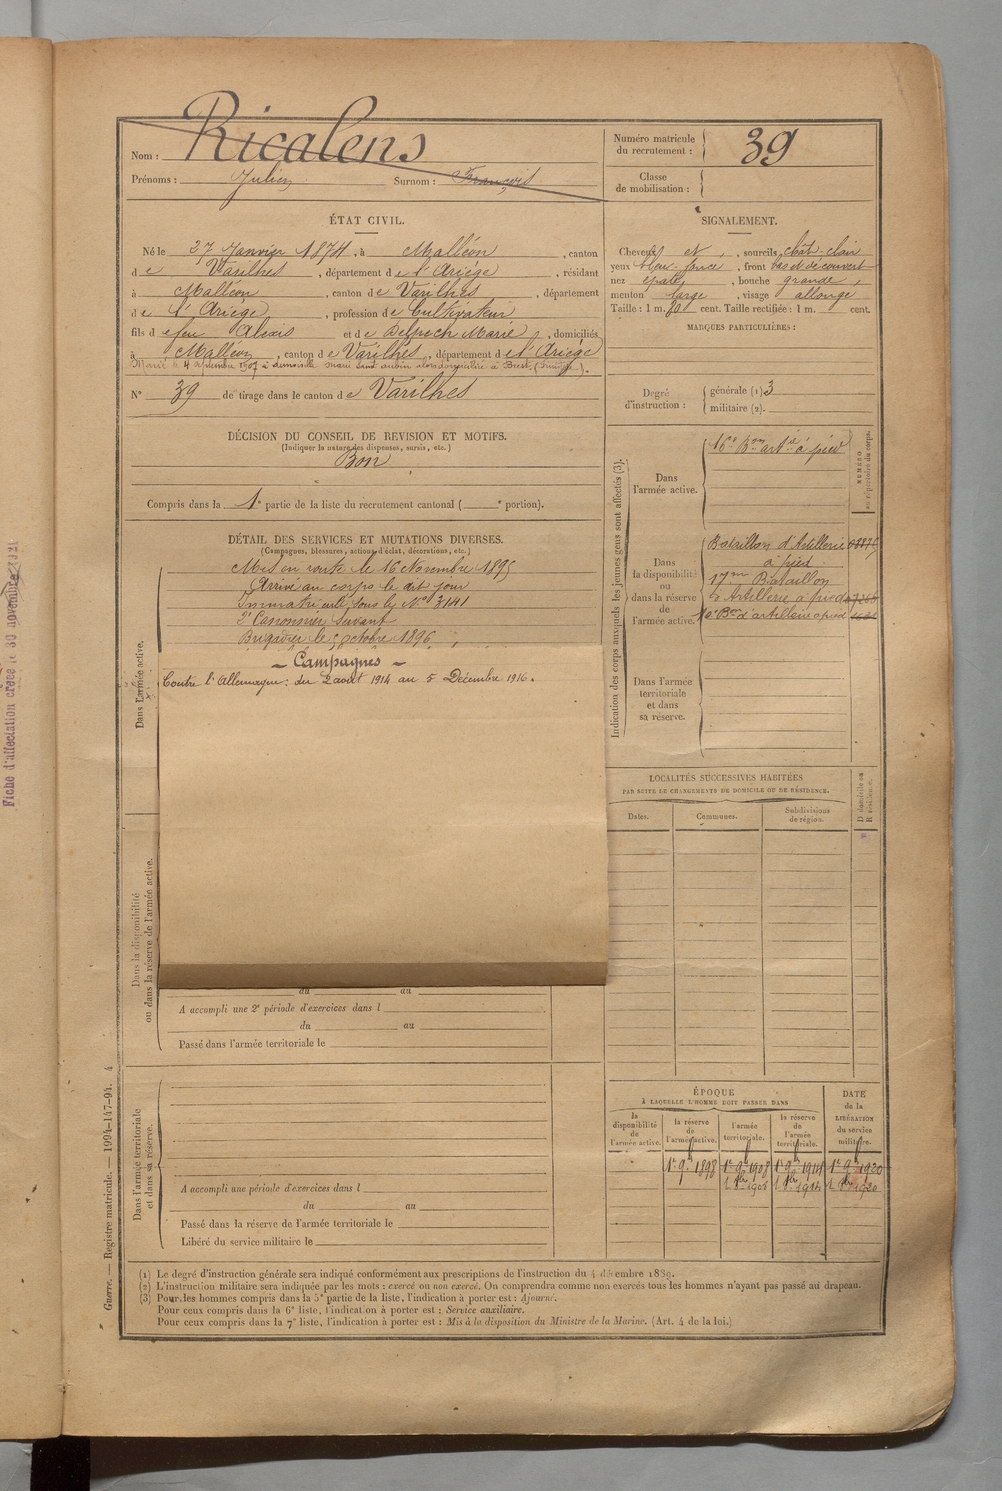 Nom : Ricalens
Prénoms : Julien Surnom : François
Numéro matricule
du recrutement : 39
Classe
de mobilisation :
ÉTAT CIVIL.
Né le 27 Janvier 1874, à Malléon, canton
de Varilhes, département de l'Ariége, résidant
à Malléon, canton de Varilhes, département
de l'Ariège, profession de Cultivateur
fils de feu Alexis et de Delpech Marie, domiciliés
à Malléon, canton de Varilhes, département de l'Ariège
Marié le 4 septembre 1907 à demoiselle Marie domiciliée à Brest, (Finistère).
N° 39 de tirage dans le canton de Varilhes
SIGNALEMENT.
Cheveux et, sourcils chât. clair
yeux bleu foncé, front bas et découvert
nez épaté, bouche grande,
menton large, visage allongé
Taille : 1 m. cent. Taille rectifiée : 1 m. cent.
MARQUES PARTICULIÈRES :
Degré
d'instruction :
générale (1) 3
militaire (2).
DÉCISION DU CONSEIL DE REVISION ET MOTIFS.
(Indiquer la nature des dispenses, sursis, etc.)
Bon
Compris dans la 1e partie de la liste du recrutement cantonal ( e portion).
DÉTAIL DES SERVICES ET MUTATIONS DIVERSES.
(Campagnes, blessures, actions d'éclat, décorations, etc.)
Dans l'armée active.
Mis en route le 16 Novembre 1895
Arrivé au corps le dit jour
Immatriculé sous le N° 3141
2e Canonnier Servant
Brigadier le octobre 1896
– Campagnes –
Contre l'Allemagne : du 2 août 1914 au 5 Décembre 1916.
Dans la disponibilité
ou dans la réserve de l'armée active.
du au
A accompli une 2e période d'exercices dans l
du au
Passé dans l'armée territoriale le
Dans l'armée territoriale
et dans sa réserve.
A accompli une période d'exercices dans l
du au
Passé dans la réserve de l'armée territoriale le
Libéré du service militaire le
Indication des corps auxquels les jeunes gens sont affectés (3).
NUMÉRO
au répertoire du corps.
Dans
l'armée active.
16e Bon artie à pied
Dans
la disponibilité
ou
dans la réserve
de
l'armée active.
Bataillon d'Artillerie
à pied
17me Bataillon
Artillerie à pied
10e Bon d'artillerie à pied
Dans l'armée
territoriale
et dans
sa réserve.
LOCALITÉS SUCCESSIVES HABITÉES
PAR SUITE DE CHANGEMENTS DE DOMICILE OU DE RÉSIDENCE.
Dates.
Communes.
Subdivisions
de région.
D domicile ou
R résidence.
ÉPOQUE
À LAQUELLE L'HOMME DOIT PASSER DANS
la
disponibilité
de
l'armée active.
la réserve
de
l'armée active.
l'armée
territoriale.
la réserve
de
l'armée
territoriale.
DATE
de la
LIBÉRATION
du service
militaire.
1er 9bre 1898 1er 9bre 1908 1er 9bre 1914 1er 9bre 1920
1908 1914 1920
(1) Le degré d'instruction générale sera indiqué conformément aux prescriptions de l'instruction du 4 décembre 1889.
(2) L'instruction militaire sera indiquée par les mots : exercé ou non exercé. On comprendra comme non exercés tous les hommes n'ayant pas passé au drapeau.
(3) Pour les hommes compris dans la 5e partie de la liste, l'indication à porter est : Ajourné.
Pour ceux compris dans la 6e liste, l'indication à porter est : Service auxiliaire.
Pour ceux compris dans la 7e liste, l'indication à porter est : Mis à la disposition du Ministre de la Marine. (Art. 4 de la loi.)
Guerre. — Registre matricule. — 1994-147-94. 4
Fiche d'affectation créée le 30 novembre 1921